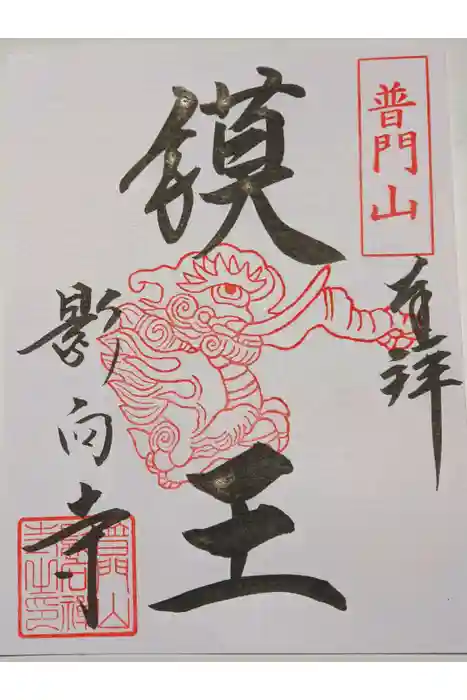 普門山
奉拝
貘王
影向寺